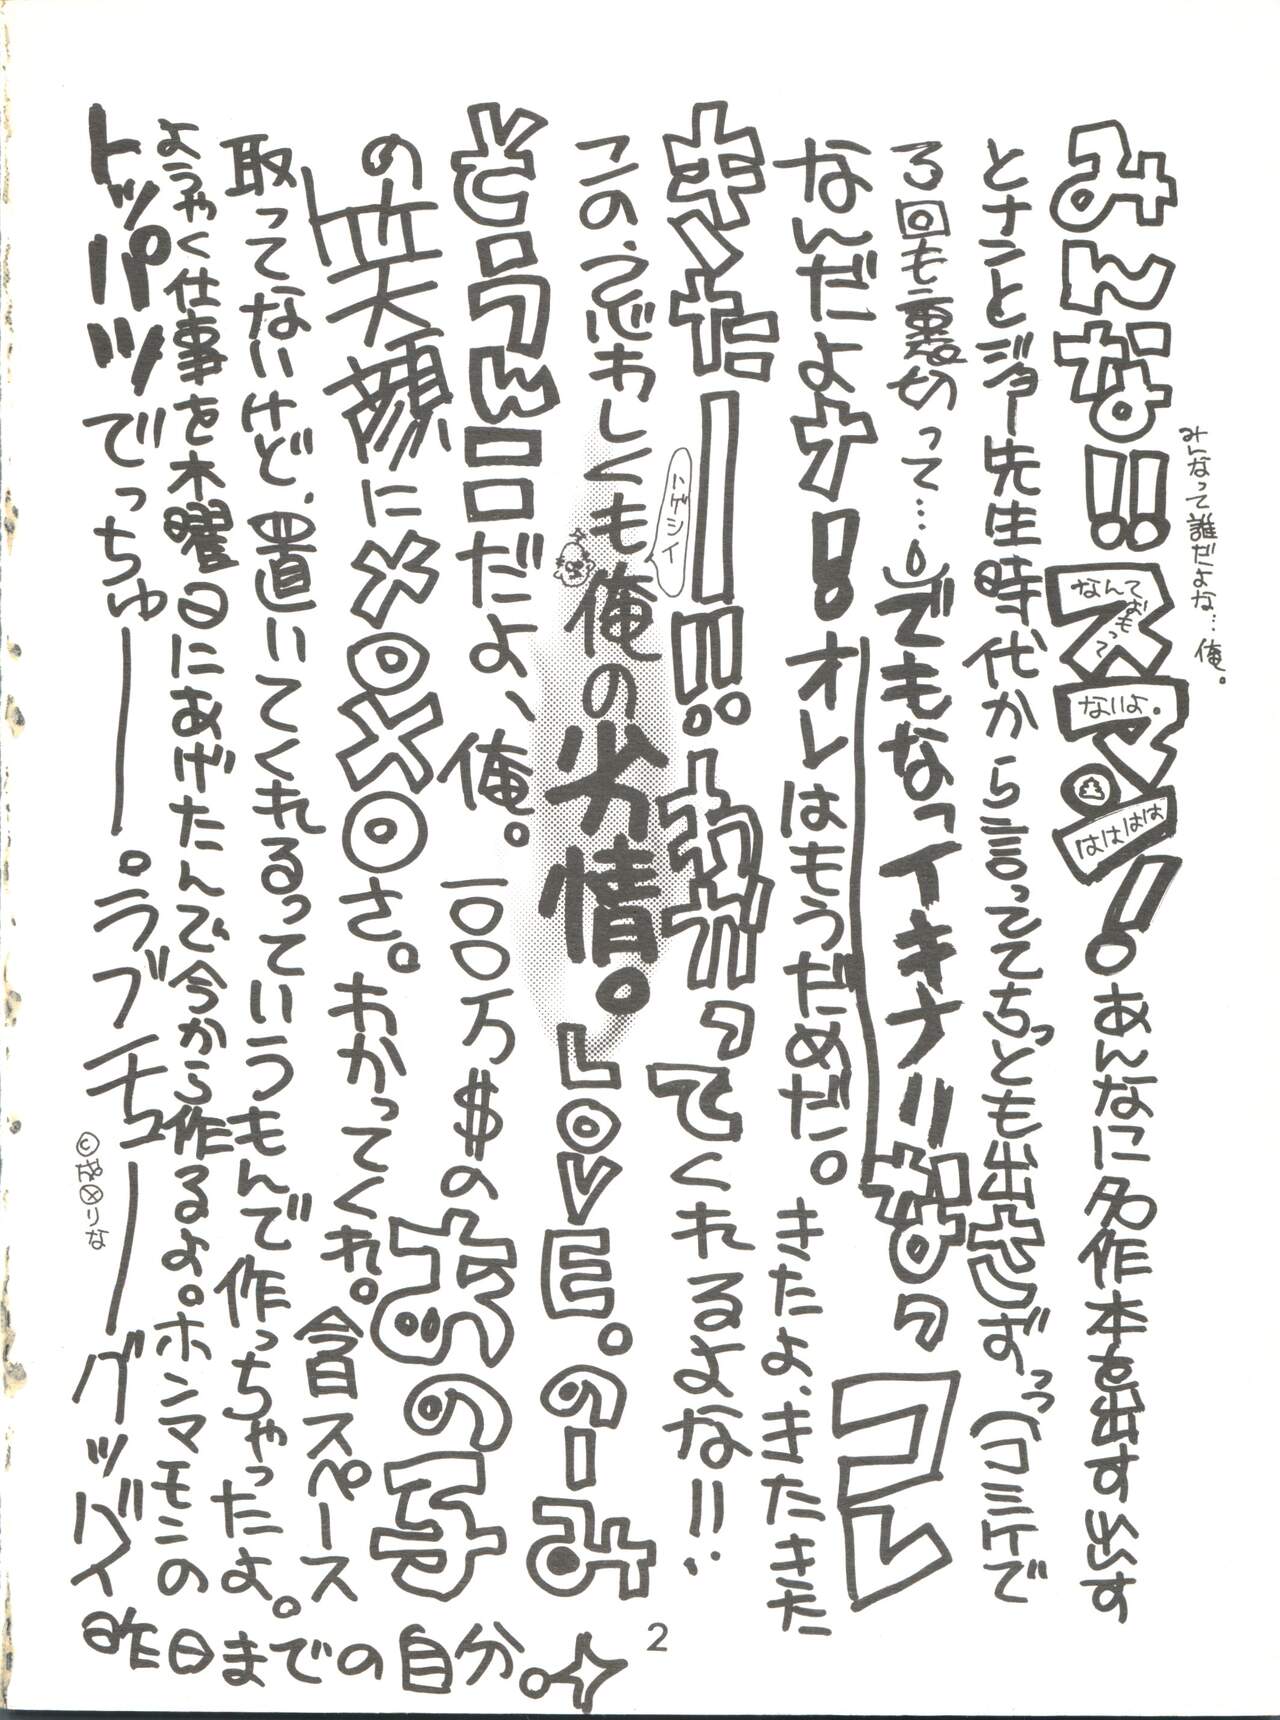 みんなって誰だよな…俺。
みんな!!スマン!あんなに名作本を出す出す
なんておもって
ないよ。
はははは
とナミとジョー先生時代から言っててちっとも出さずっっ(コミケで
3回も裏切って…。)でもなっイキナリなっコレ
なんだよナ!オレはもうだめだ。きたよ、きたきた
きたーーー!!わかってくれるよな!!
ハゲシイ
この、うごめしくも俺の劣情。LOVE。のーみ
そとろんロロだよ、俺。100万$のあの子
の笑顔に×○×○さ。わかってくれ。今日スペース
取ってないけど、置いてくれるっていうもんで作っちゃったよ。
ようやく仕事を木曜日にあげたんで今から作るよ。ホンマモンの
トッパツでっちゅーーー。ラブチューーーグッバイ
昨日までの自分。
2